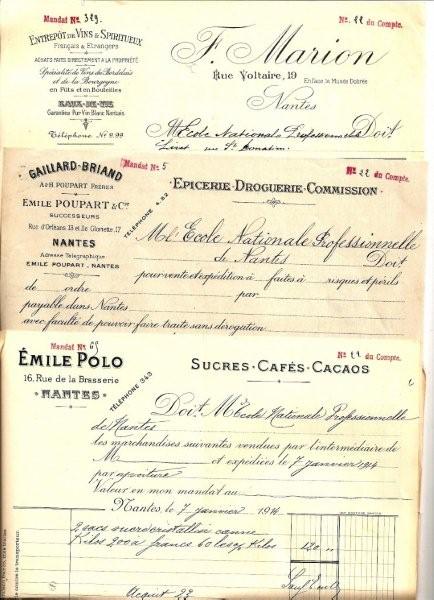 Mandat No. 329.
No. 22 du Compte.
ENTREPÔT DE VINS & SPIRITUEUX
Français & Etrangers
ACHATS FAITS DIRECTEMENT A LA PROPRIÉTÉ
Spécialité de Vins de Bordelais
et de la Bourgogne
en Fûts et en Bouteilles
EAUX-DE-VIE
Garanties Pur Vin Blanc Nantais
Téléphone No 9.99
F. Marion
Rue Voltaire, 19
En face le Musée Dobrée
Nantes
M. Ecole Nationale Professionnelle Doit
Livet rue St Donatien
Mandat No. 5
No. 22 du Compte.
GAILLARD-BRIAND
A & H POUPART FRÈRES
EMILE POUPART & Cie
SUCCESSEURS
Rue d'Orléans, 13 et Ile Gloriette, 17
NANTES
Adresse Télégraphique
EMILE POUPART - NANTES
TÉLÉPHONE 4.82
EPICERIE-DROGUERIE-COMMISSION
M l'Ecole Nationale Professionnelle
de Nantes Doit
pour vente et expédition à faites à risques et périls
de ordre par
payable dans Nantes
avec faculté de pouvoir faire traite sans dérogation.
Mandat No.
No. 22 du Compte.
ÉMILE POLO
16, Rue de la Brasserie
NANTES
TÉLÉPHONE 343
SUCRES-CAFÉS-CACAOS
Doit M Ecole Nationale Professionnelle
de Nantes
les marchandises suivantes vendues par l'intermédiaire de
M et expédiées le 7 janvier 1914
par voiture
Valeur en mon mandat au
Nantes le 7 janvier 1914
2 sacs sucre cristallisé canne
Kilos 200 à francs 60 les % Kilos 120 "
Acquit 22